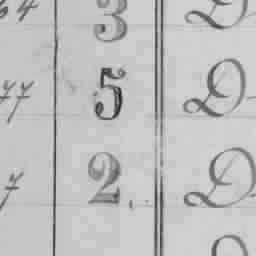 64 3 D
77 5 D
7 2. D
D